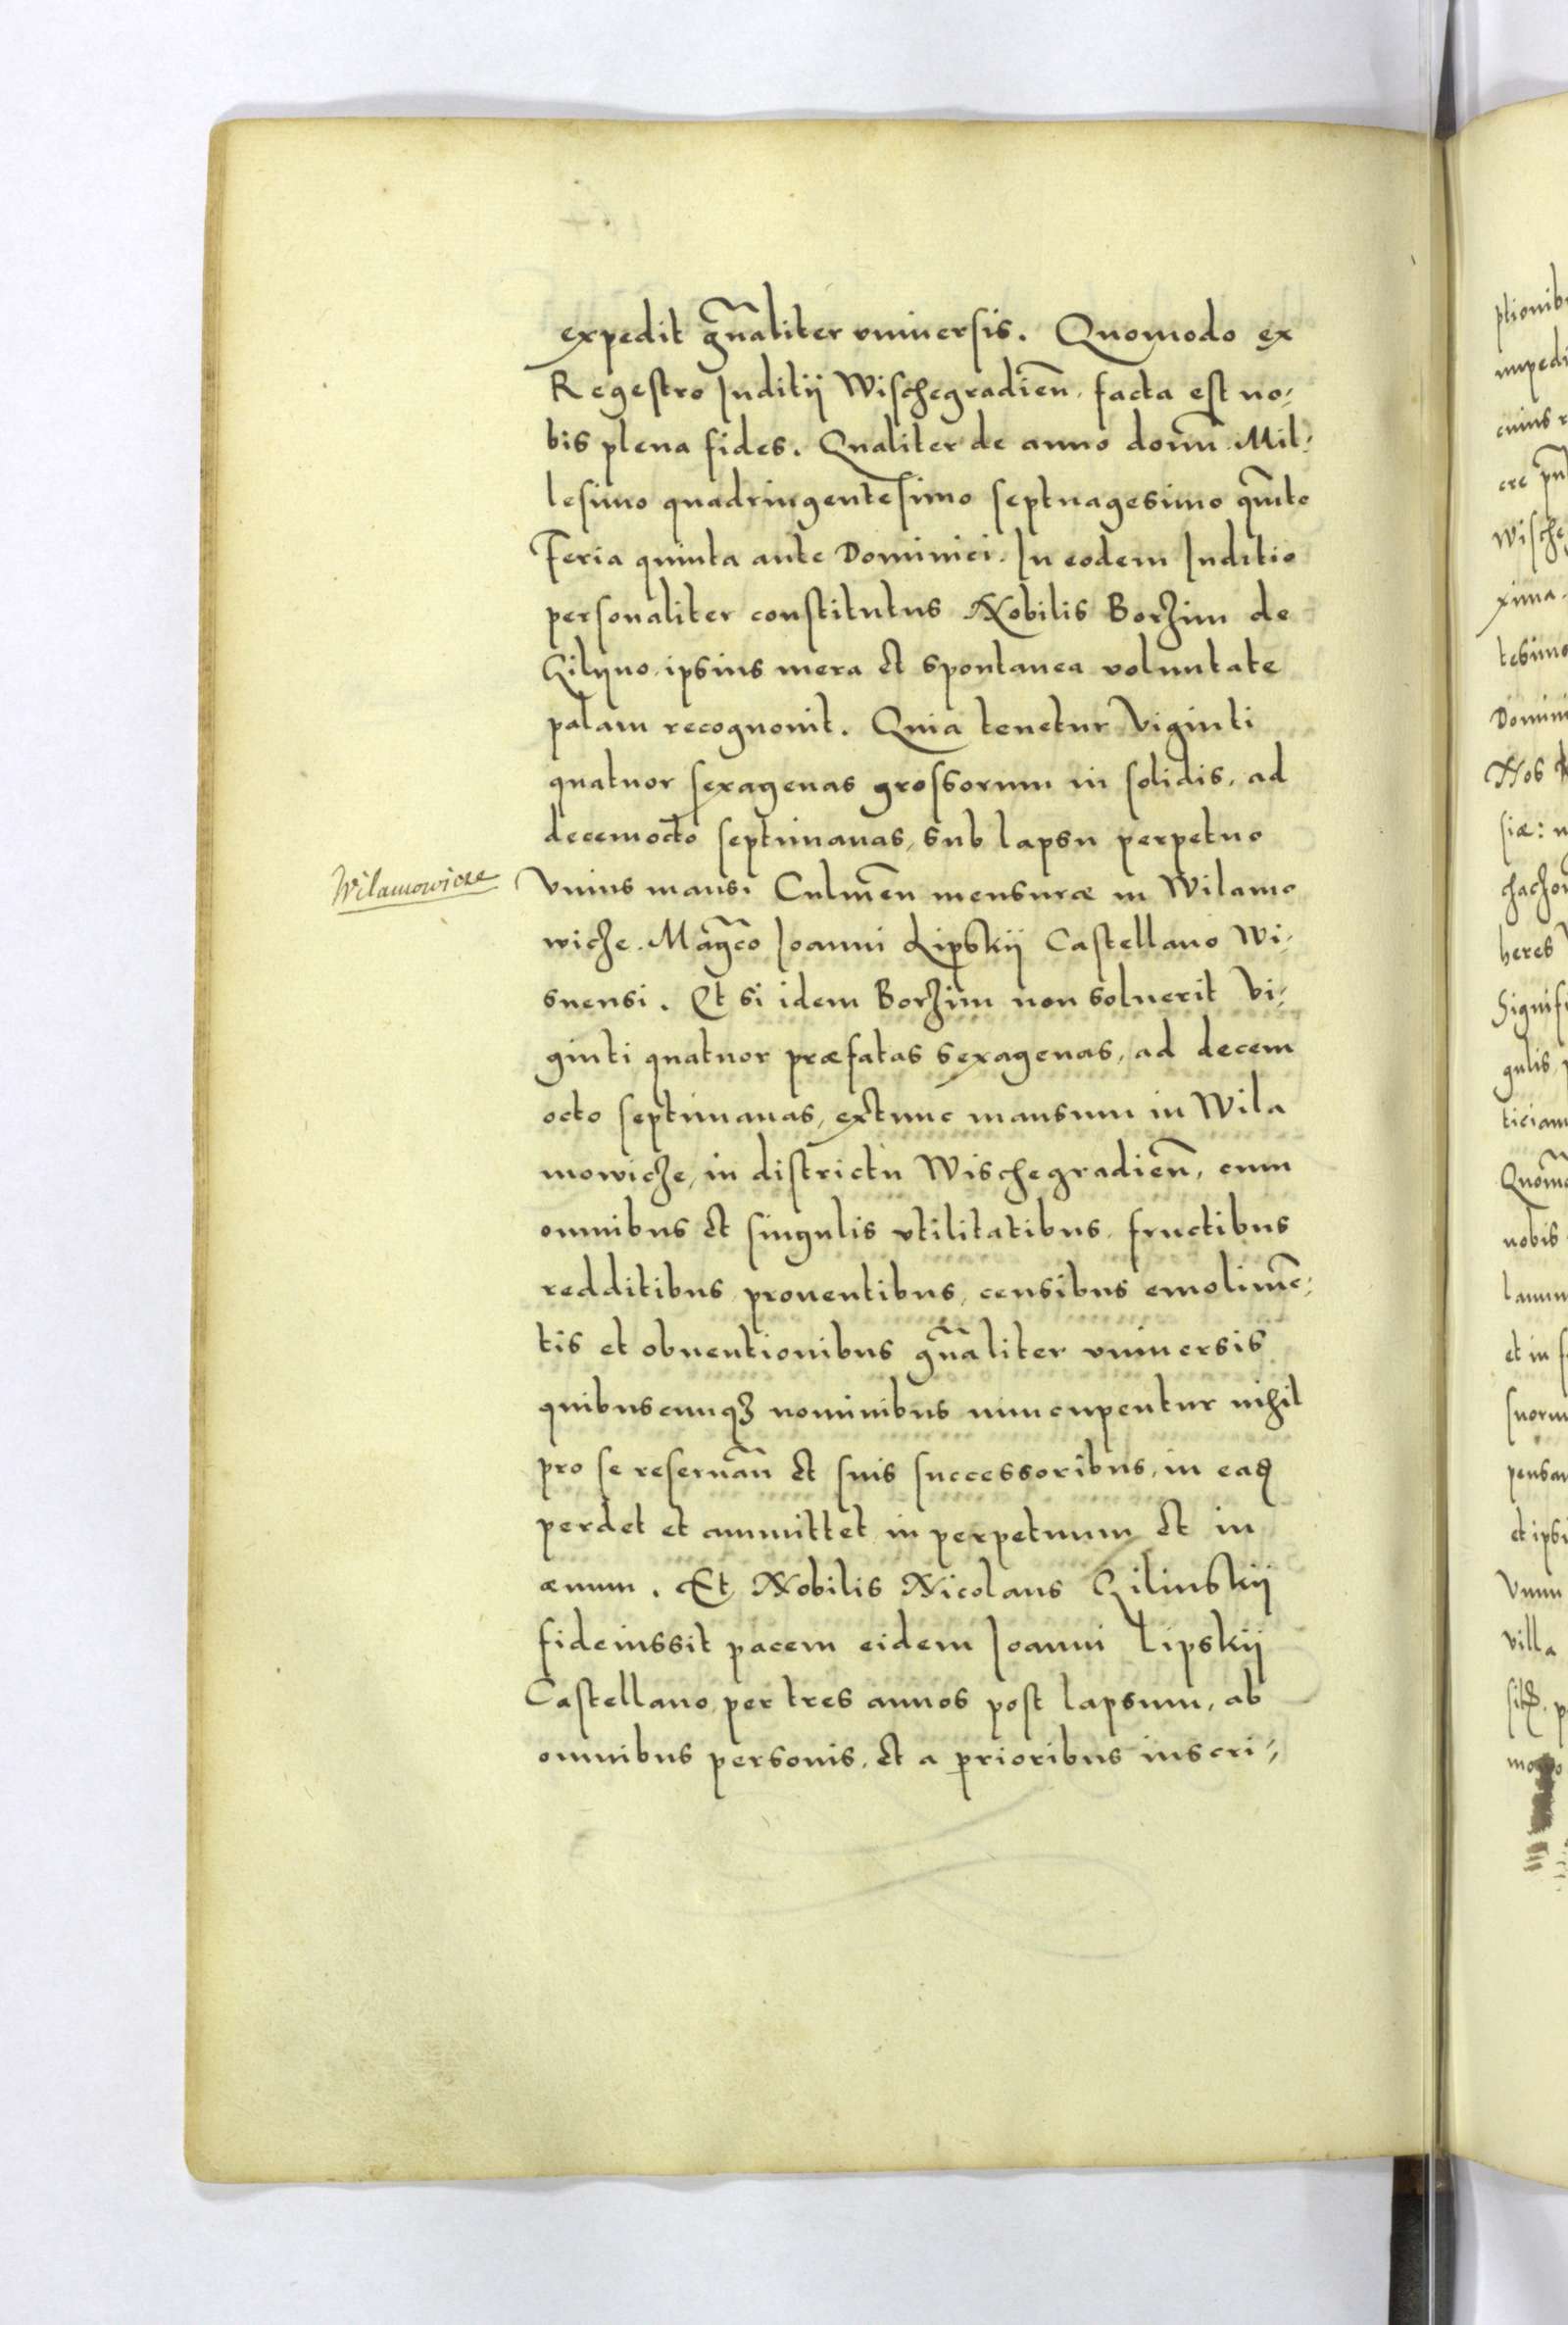 expedit gñaliter vniuersis. Quomodo ex
Regestro Iuditij Wischegradieñ. facta est no-
bis plena fides. Qualiter de anno domĩ. Mil-
lesimo quadringentesimo septuagesimo qũito
Feria quinta ante Dominici. In eodem Iuditio
personaliter constitutus Nobilis Borzim de
Zilyno. ipsius mera et spontanea voluntate
palam recognouit. Quia tenetur Viginti
quatuor sexagenas grossorum in solidis, ad
decemocto septimanas, sub lapsu perpetuo
Wilamowicze
Vnius mansi Culmeñ mensuræ in Wilamo
wicze. Mãgco Ioanni Lipskij Castellano Wi-
snensi. Et si idem Borzim non soluerit Vi-
ginti quatuor præfatas sexagenas, ad decem
octo septimanas, extunc mansum in Wila
mowicze, in districtu Wischegradieñ, cum
omnibus et singulis vtilitatibus, fructibus
redditibus, prouentibus, censibus emolimẽ-
tis et obuentionibus gñaliter vniuersis
quibuscunqꝫ nominibus nuncupentur nihil
pro se reseruãn et suis successoribus, in eaꝗ
perdet et ammittet in perpetuum et in
æuum. Et Nobilis Nicolaus Zilinskij
fideiussit pacem eidem Ioanni Lipskij
Castellano per tres annos post lapsum, ab
omnibus personis, et a prioribus inscri-